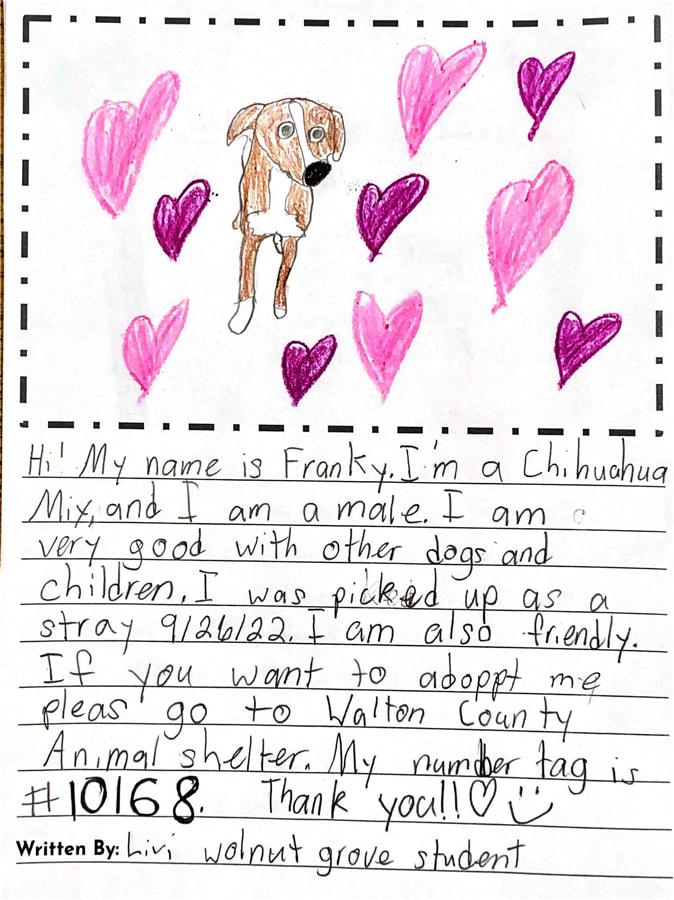 Hi! My name is Franky. I'm a Chihuahua
Mix, and I am a male. I am
very good with other dogs and
children. I was picked up as a
stray 9/26/22. I am also friendly.
If you want to adoppt me,
pleas go to Walton County
Animal shelter. My number tag is
#10168. Thank you!!♡ :)
Written By: Livi wolnut grove student